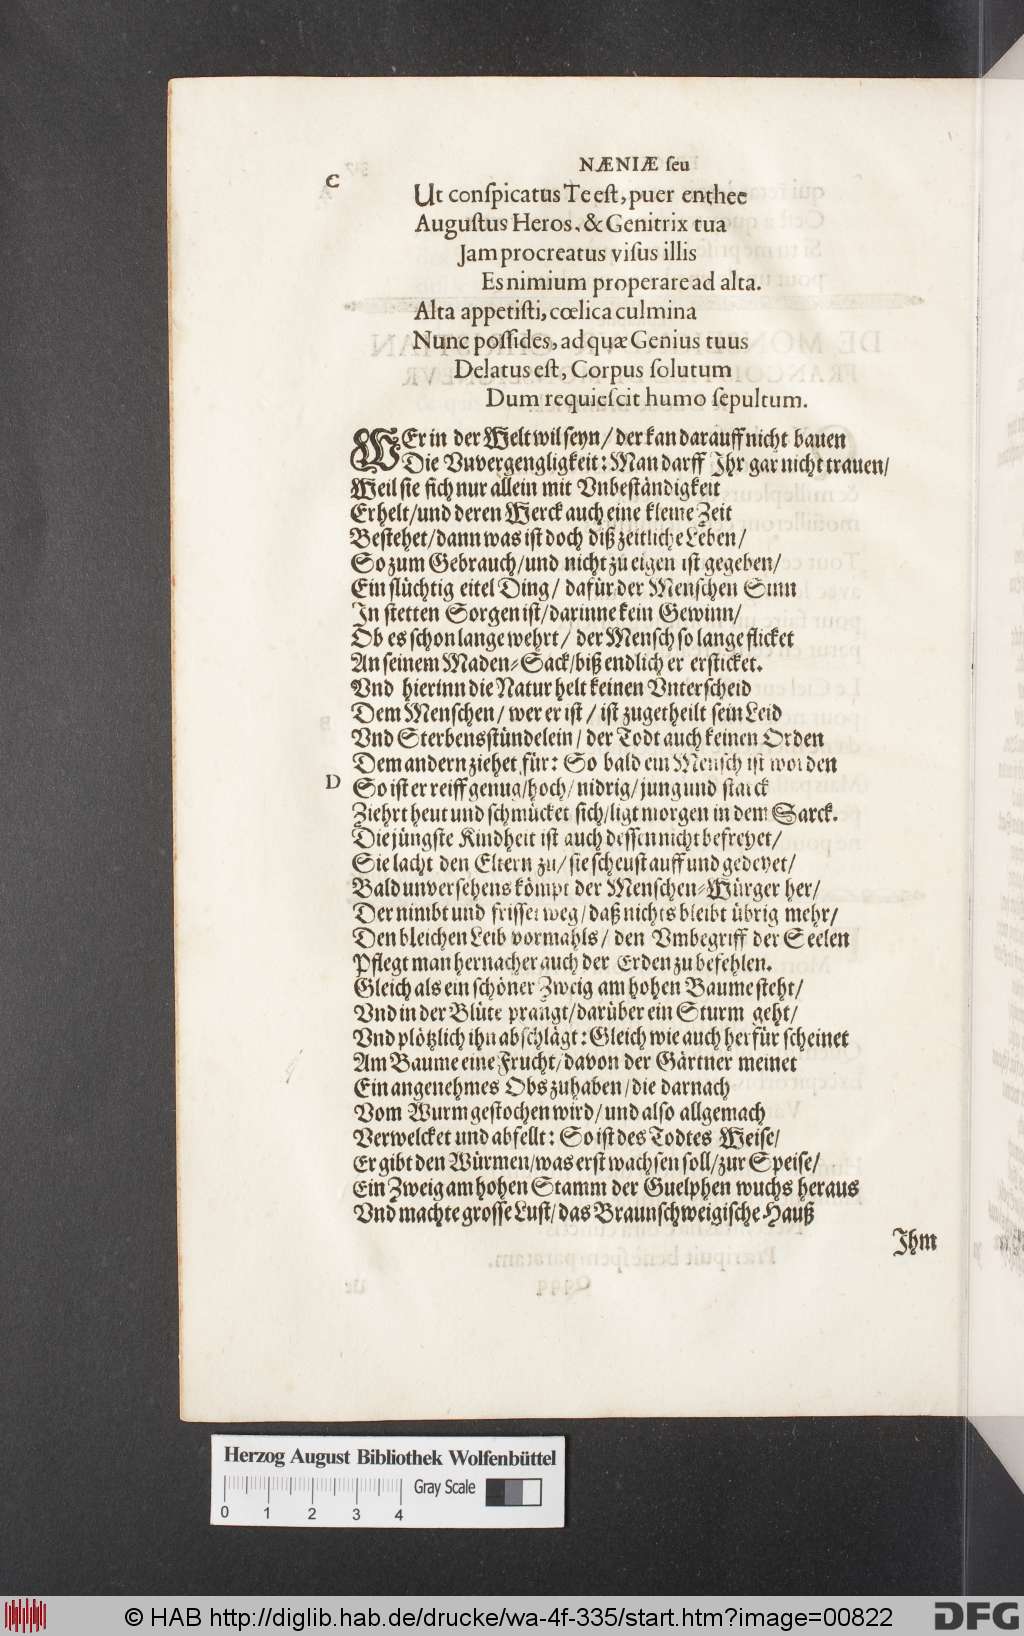 NÆNIÆ ſeu
C
Ut conſpicatus Te eſt, puer enthee
Auguſtus Heros, & Genitrix tua
Jam procreatus viſus illis
Es nimium properare ad alta.
Alta appetiſti, cœlica culmina
Nunc poſſides, ad quæ Genius tuus
Delatus eſt, Corpus ſolutum
Dum requieſcit humo ſepultum.
WEr in der Welt wil ſeyn/ der kan darauff nicht bauen
Die Vnvergengligkeit: Man darff Jhr gar nicht trauen/
Weil ſie ſich nur allein mit Vnbeſtändigkeit
Erhelt/ und deren Werck auch eine kleine Zeit
Beſtehet/ dann was iſt doch diß zeitliche Leben/
So zum Gebrauch/ und nicht zu eigen iſt gegeben/
Ein flüchtig eitel Ding/ dafür der Menſchen Sinn
In ſtetten Sorgen iſt/ darinne kein Gewinn/
Ob es ſchon lange wehrt/ der Menſch ſo lange flicket
An ſeinem Maden-Sack/ biß endlich er erſticket.
Vnd hierinn die Natur helt keinen Vnterſcheid
Dem Menſchen/ wer er iſt/ iſt zugetheilt ſein Leid
Vnd Sterbensſtündelein/ der Todt auch keinen Orden
Dem andern ziehet für: So bald ein Menſch iſt worden
D
So iſt er reiff genug/ hoch/ nidrig/ jung und ſtarck
Ziehrt heut und ſchmücket ſich/ ligt morgen in dem Sarck.
Die jüngſte Kindheit iſt auch deſſen nicht befreyet/
Sie lacht den Eltern zu/ ſie ſcheuſt auff und gedeyet/
Bald unverſehens kömpt der Menſchen-Würger her/
Der nimbt und friſſet weg/ daß nichts bleibt übrig mehr/
Den bleichen Leib vormahls/ den Vmbegriff der Seelen
Pflegt man hernacher auch der Erden zu befehlen.
Gleich als ein ſchöner Zweig am hohen Baume ſteht/
Vnd in der Blüte prangt/ darüber ein Sturm geht/
Vnd plötzlich ihn abſchlägt: Gleich wie auch herfür ſcheinet
Am Baume eine Frucht/ davon der Gärtner meinet
Ein angenehmes Obs zu haben/ die darnach
Vom Wurm geſtochen wird/ und alſo allgemach
Verwelcket und abfellt: So iſt des Todtes Weiſe/
Er gibt den Würmen/ was erſt wachſen ſoll/ zur Speiſe/
Ein Zweig am hohen Stamm der Guelphen wuchs heraus
Vnd machte groſſe Luſt/ das Braunſchweigiſche Hauß
Jhm
Herzog August Bibliothek Wolfenbüttel
Gray Scale
0 1 2 3 4
© HAB http://diglib.hab.de/drucke/wa-4f-335/start.htm?image=00822
DFG